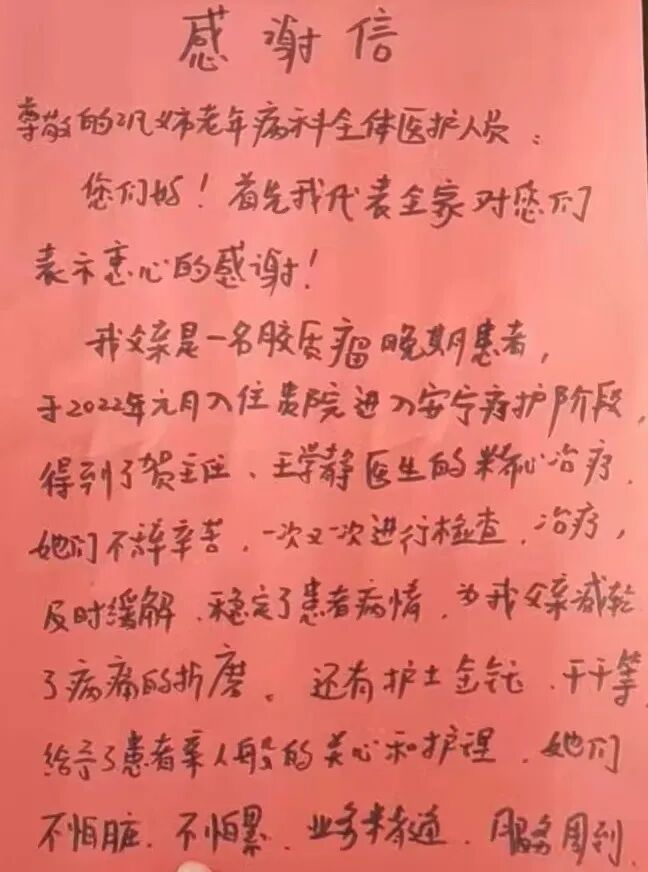 感谢信
尊敬的巩妇老年病科全体医护人员：
您们好！首先我代表全家对您们
表示衷心的感谢！
我父亲是一名胶质瘤晚期患者，
于2022年元月入住贵院进入安宁疗护阶段，
得到了贺主任、王学静医生的精心治疗，
她们不辞辛苦，一次又一次进行检查，治疗，
及时缓解，稳定了患者病情，为我父亲减轻
了病痛的折磨。还有护士金钰、干干等，
给予了患者亲人般的关心和护理，她们
不怕脏、不怕累，业务精通，服务周到，